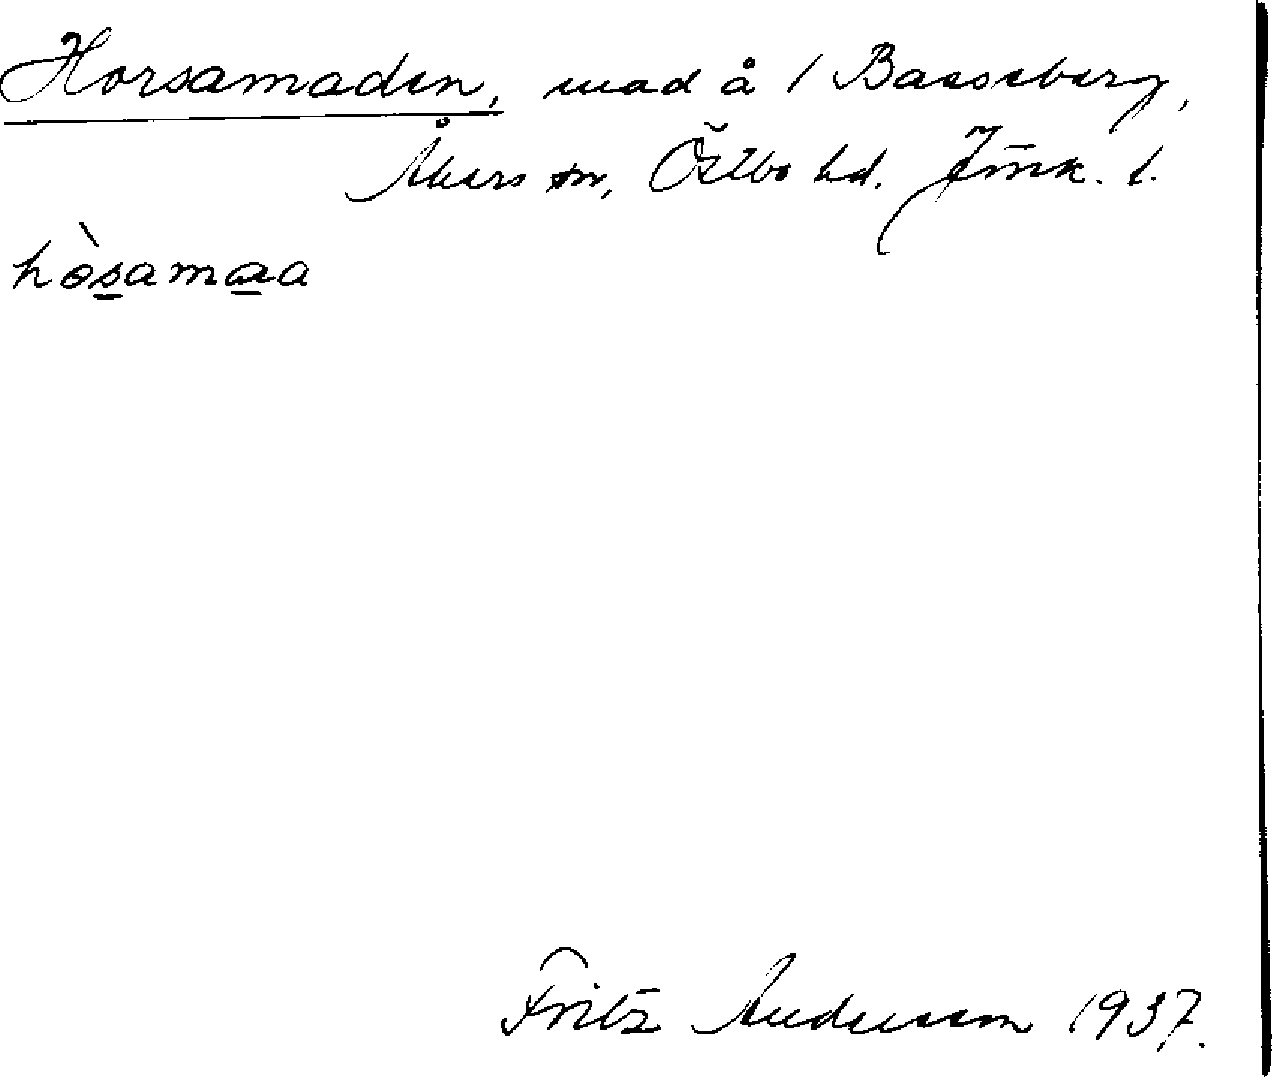 Horsamaden, mad å / Baeseberg,
Åkers sn, Östbo hd. Jönk. l.
hòsamaa
Fritz Andersson 1937.